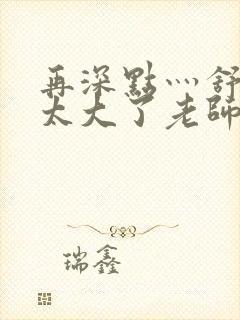 再深點灬舒
太大了老師
瑞鑫